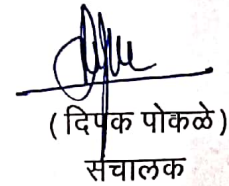 (दिपक पोकळे)
संचालक